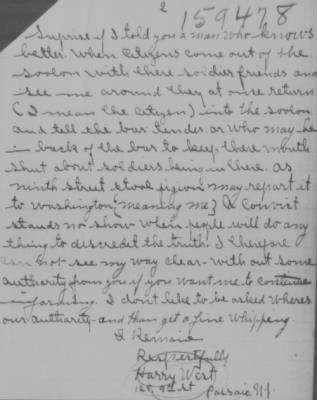 2
159478
Suprise if I told you a man who knows
better. When citizens come out of the
soolon with there soldier friends and
see me around they at onse return
(I mean the citizen) into the soolon
and tell the bar tender. or who may be
in back of the bar to keep there mouth
shut about soldiers being in there. as
ninth street stool pigion may repart it
to Washington (meaning me) a convict
stands no show when people will do any
thing to discredit the truth. I therefore
can not see my way clear with out some
authority from you if you want me to continue
informing. I dont like to be asked wheres
our authority and than get a fine whipping
I Remain
Respectfully
Harry West
9th st Passaic NJ.